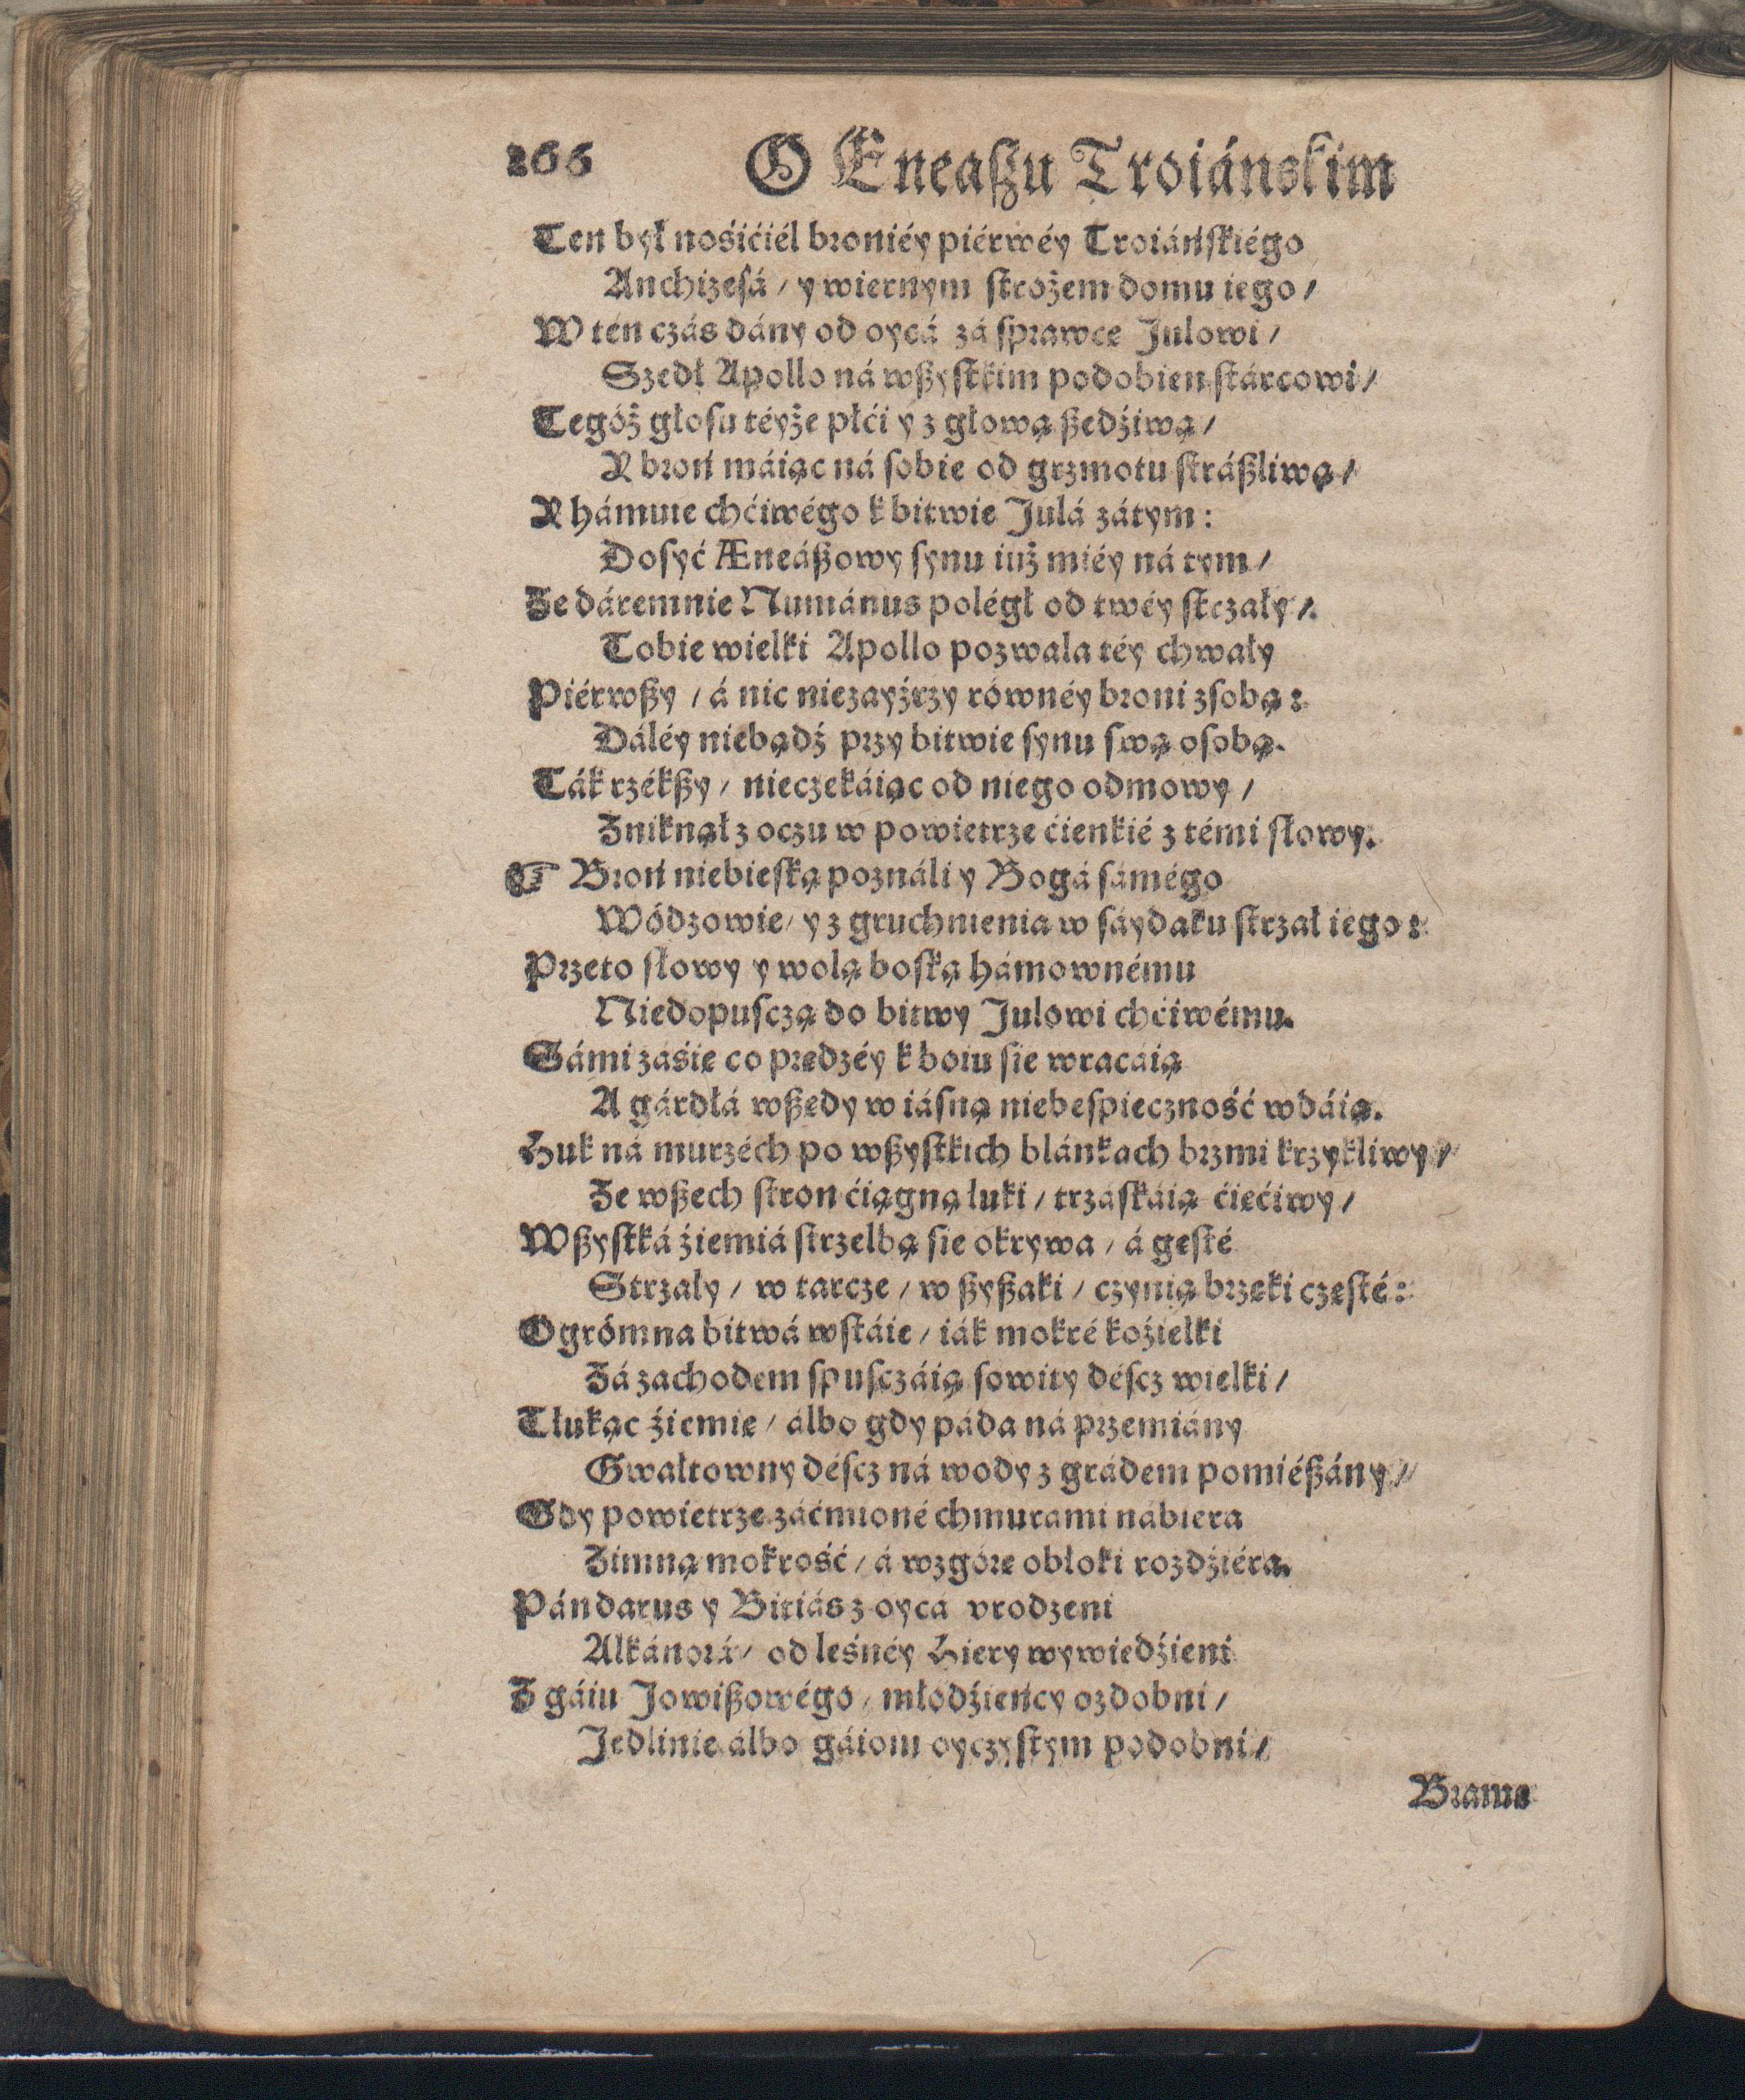 266 O Eneaſzu Troiánskim
Ten był nośićiél broniéy piérwéy Troiáńſkiégo
Anchizeſá / y wiernym ſtrożem domu iego /
W tén czás dány od oycá zá ſprawcę Julowi /
Szedł Apollo ná wßyſtkim podobien ſtárcowi /
Tegóż głoſu téyże płći y z głową ßedźiwą /
Y broń máiąc ná ſobie od grzmotu ſtráßliwą /
Y hámuie chćiwégo k bitwie Julá zátym :
Doſyć Æneáßowy ſynu iuż miéy ná tym /
Że dáremnie Numánus poległ od twéy ſtrzały /
Tobie wielki Apollo pozwala téy chwały
Piérwßy / á nic niezayźrzy równéy broni zſobą :
Dáléy niebądź przy bitwie ſynu ſwą oſobą.
Ták rzékßy / nieczekáiąc od niego odmowy /
Zniknął z oczu w powietrze ćienkié z témi ſłowy.
☞ Broń niebieſką poználi y Bogá ſámégo
Wódzowie / y z gruchnienia w ſáydaku ſtrzał iego :
Przeto ſłowy y wolą boſką hámownému
Niedopuſczą do bitwy Julowi chćiwému.
Sámi záśię co prędzéy k boiu ſie wracáią
A gárdłá wßędy w iáſną niebeſpieczność wdáią.
Huk ná murzéch po wßyſtkich blánkach brzmi krzykliwy /
Ze wßech ſtron ćiągną łuki / trzáſkáią ćięćiwy /
Wßyſtká źiemiá ſtrzelbą ſie okrywa / á gęſté
Strzały / w tarcze / w ßyßaki / czynią brzęki częſté :
Ogrómna bitwá wſtáie / iák mokré koźielki
Zá zachodem ſpuſczáią ſowity déſcz wielki /
Tłukąc źiemię / álbo gdy páda ná przemiány
Gwałtowny déſcz ná wody z grádem pomiéßány /
Gdy powietrze záćmioné chmurami nábiera
Zimną mokrość / á wzgórę obłoki rozdźiéra.
Pándarus y Bitiás z oyca vrodzeni
Alkánorá / od leśnéy Hiery wywiedźieni
Z gáiu Jowißowégo / młodźieńcy ozdobni /
Jedlinie álbo gáiom oyczyſtym podobni /
Bramę